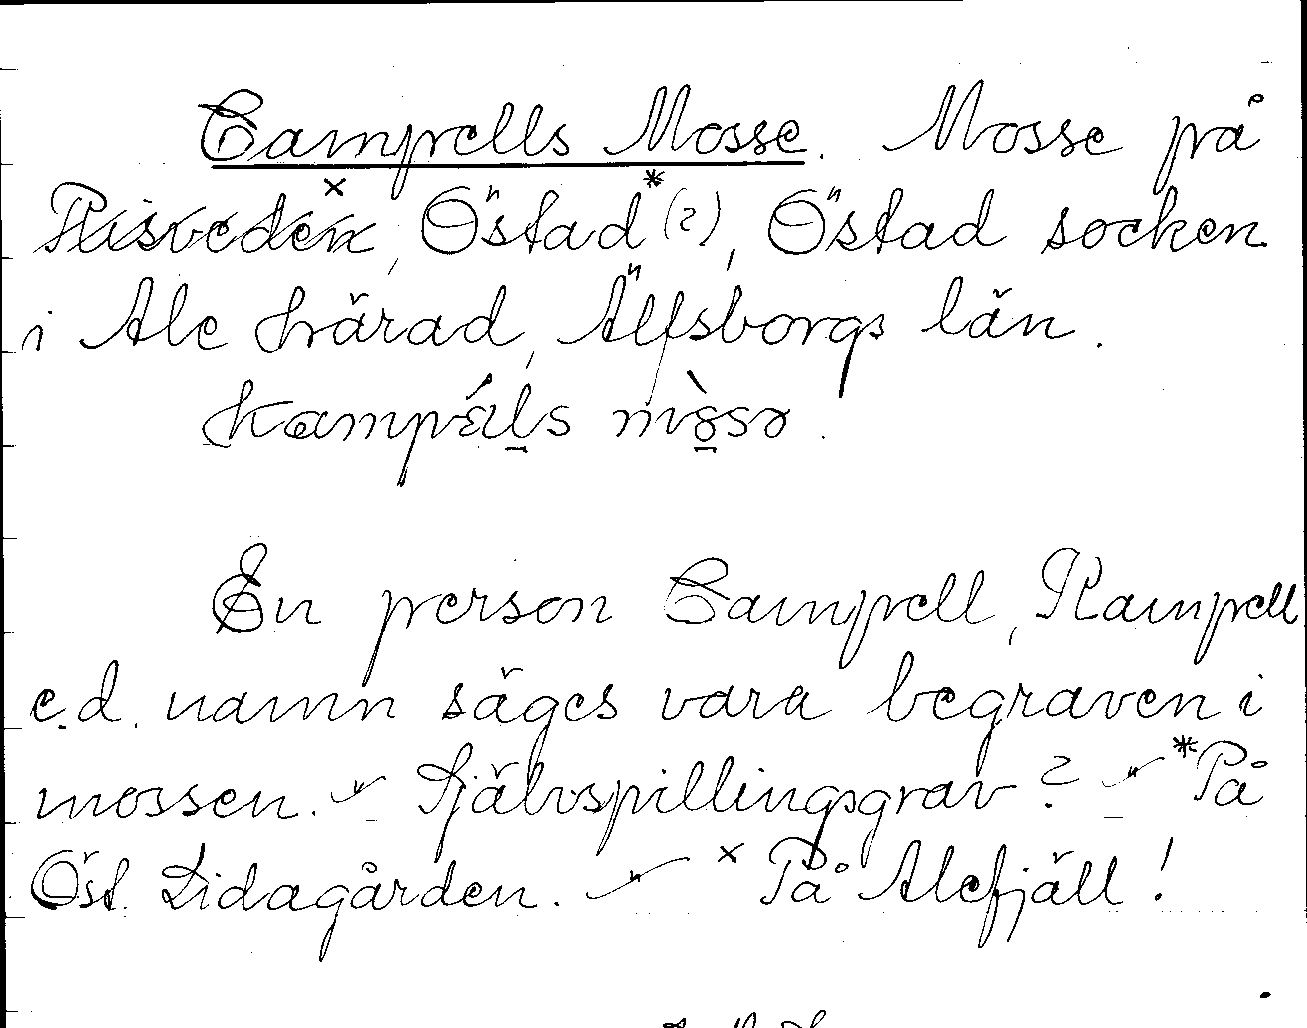 Campells Mosse. Mosse på
Risveden ×, Östad * (?), Östad socken
i Ale härad, Älfsborgs län.
kampæ̀l̠s mo̠sə.
En person Campell, Kampell
e.d. namn säges vara begraven i
mossen. — Självspillingsgrav? — * På
Öst. Lidagården. — × På Alefjäll!